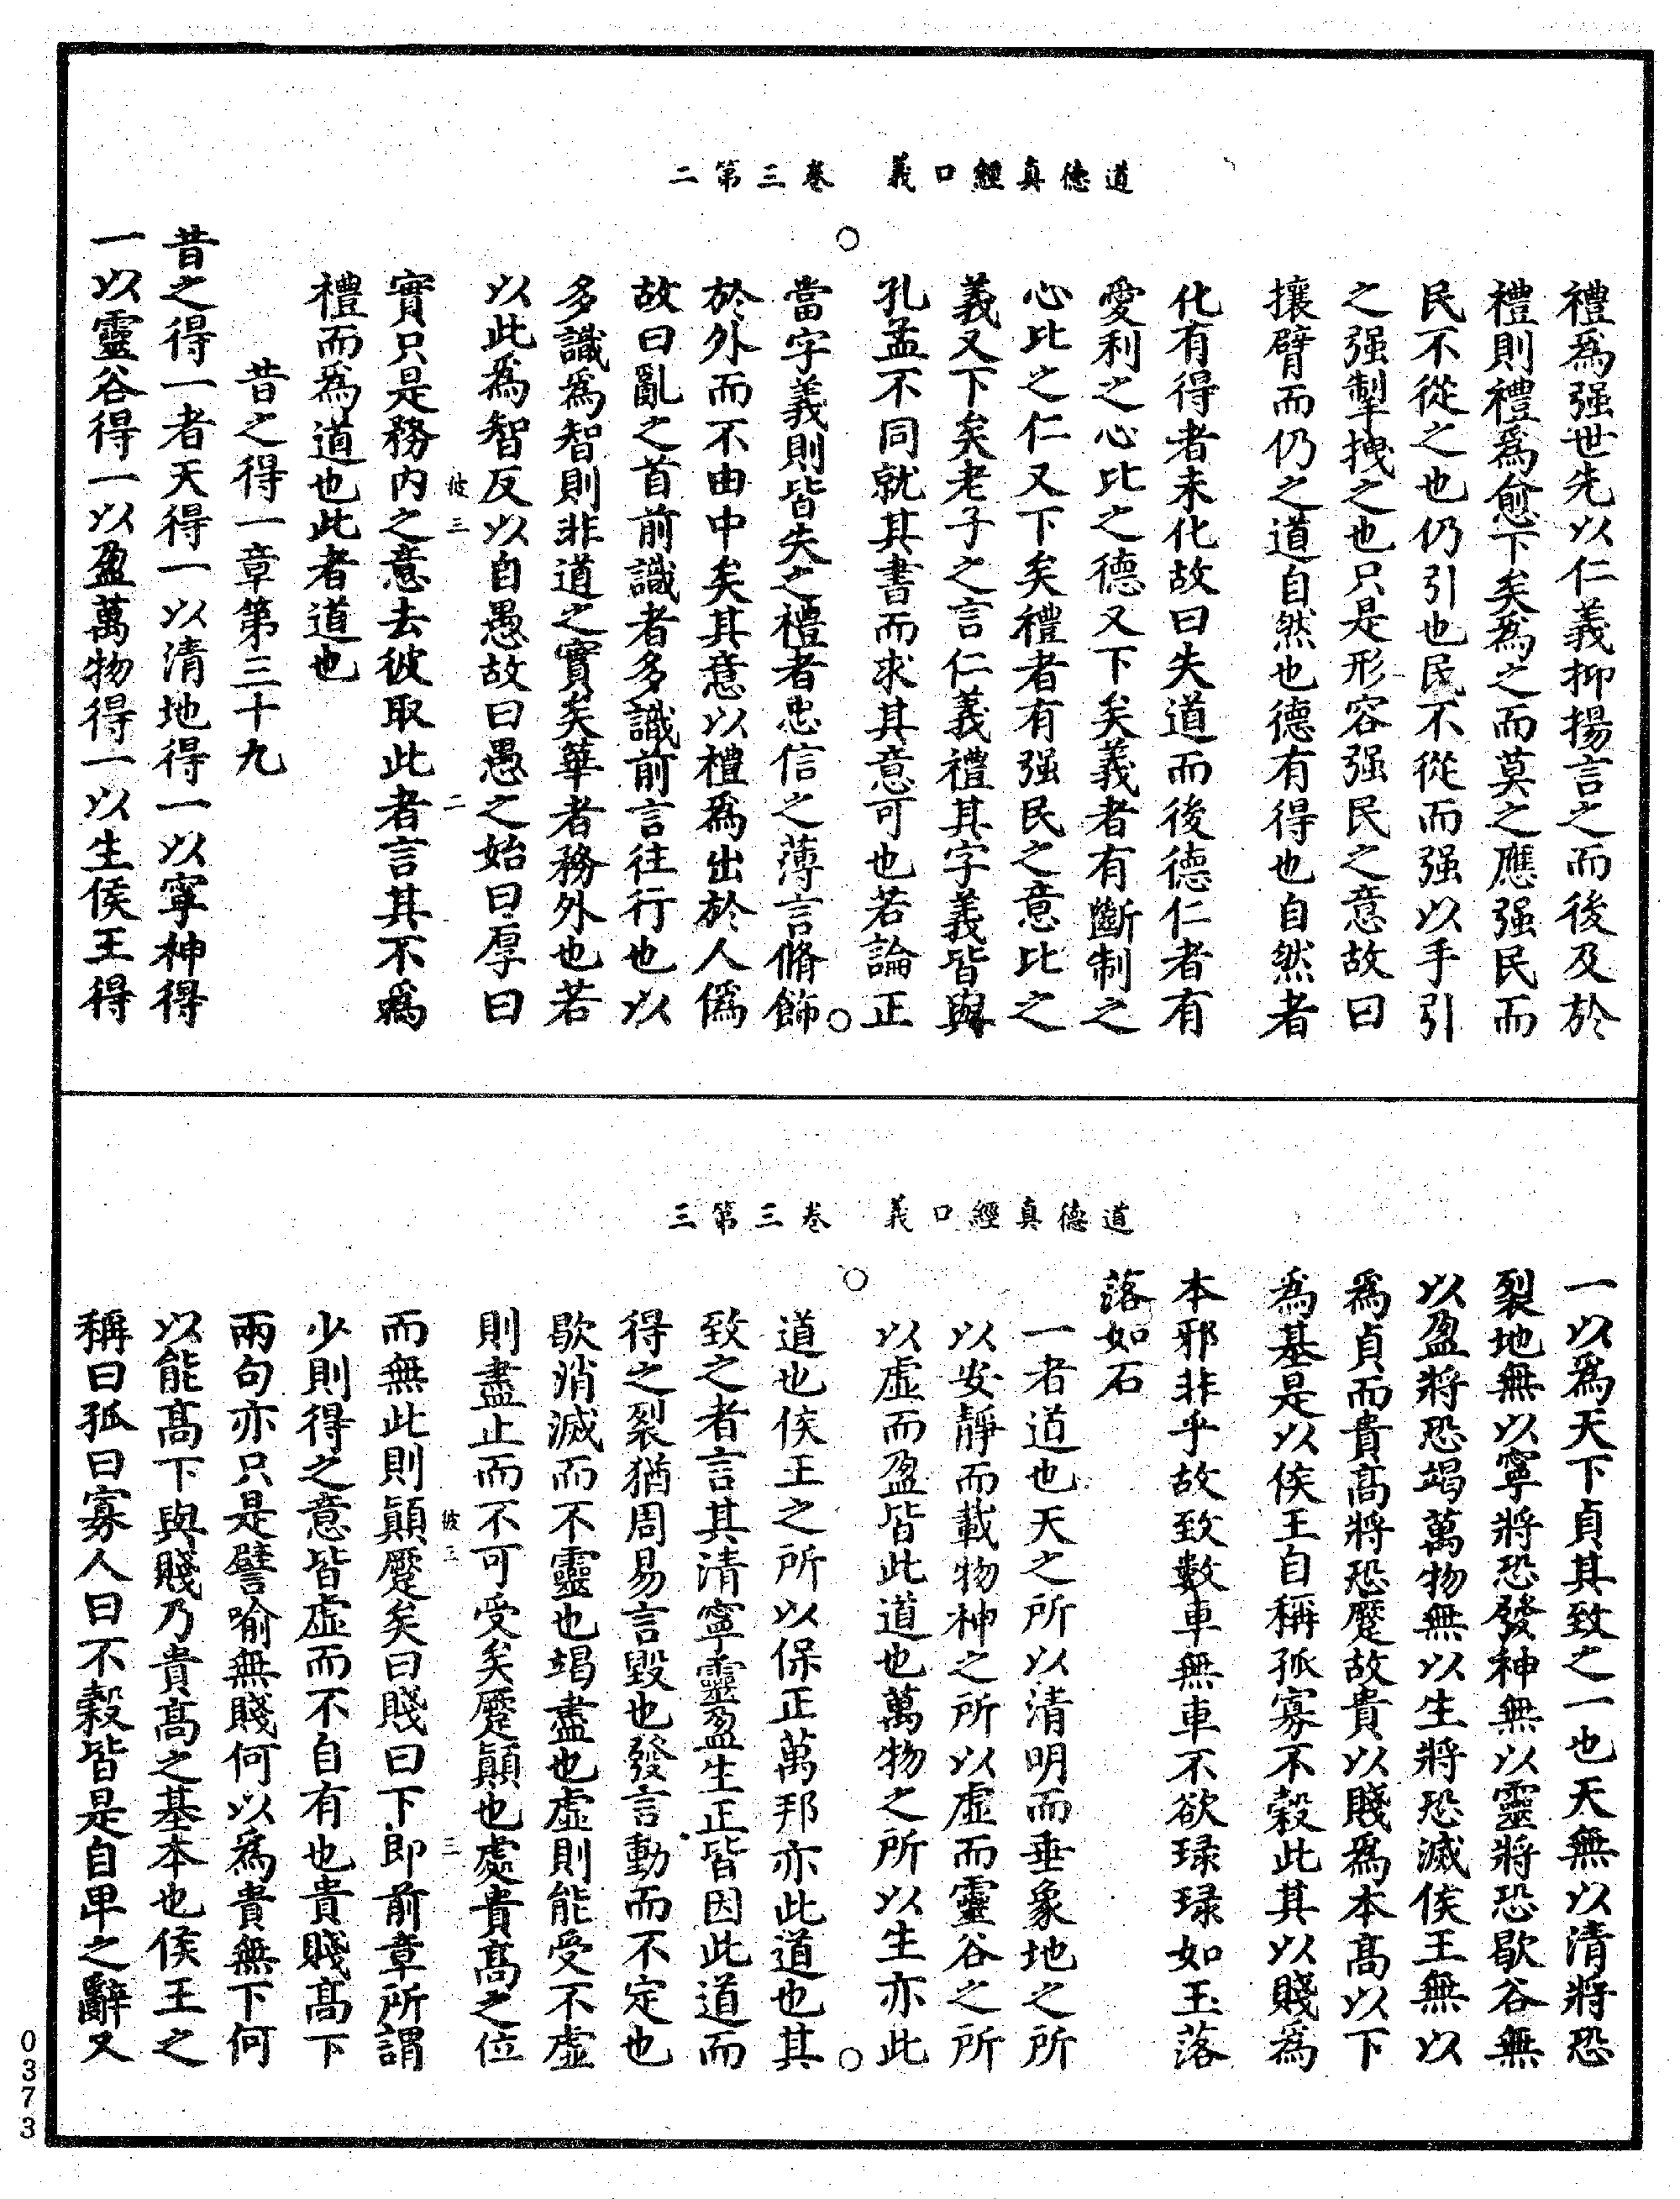 道德真經口義　卷三第二
禮爲强世先以仁義抑揚言之而後及於
禮則禮爲愈下矣爲之而莫之應强民而
民不從之也仍引也民不從而强以手引
之强掣拽之也只是形容强民之意故曰
攘臂而仍之道自然也德有得也自然者
化有得者未化故曰失道而後德仁者有
愛利之心比之德又下矣義者有斷制之
心比之仁又下矣禮者有强民之意比之
義又下矣老子之言仁義禮其字義皆與
孔孟不同就其書而求其意可也若論正
當字義則皆失之禮者忠信之薄言脩飾
於外而不由中矣其意以禮爲出於人僞
故曰亂之首前識者多識前言往行也以
多識爲智則非道之實矣華者務外也若
以此爲智反以自愚故曰愚之始曰厚曰
彼三　二
實只是務內之意去彼取此者言其不爲
禮而爲道也此者道也
昔之得一章第三十九
昔之得一者天得一以清地得一以寧神得
一以靈谷得一以盈萬物得一以生侯王得
道德真經口義　卷三第三
一以爲天下貞其致之一也天無以清將恐
裂地無以寧將恐發神無以靈將恐歇谷無
以盈將恐竭萬物無以生將恐滅侯王無以
爲貞而貴高將恐蹷故貴以賤爲本高以下
爲基是以侯王自稱孤寡不穀此其以賤爲
本邪非乎故致數車無車不欲琭琭如玉落
落如石
一者道也天之所以清明而垂象地之所
以安靜而載物神之所以虛而靈谷之所
以虛而盈皆此道也萬物之所以生亦此
道也侯王之所以保正萬邦亦此道也其
致之者言其清寧靈盈生正皆因此道而
得之裂猶周易言毀也發言動而不定也
歇消滅而不靈也竭盡也虛則能受不虛
則盡止而不可受矣蹷顛也處貴高之位
彼三　三
而無此則顛蹷矣曰賤曰下即前章所謂
少則得之意皆虛而不自有也貴賤高下
兩句亦只是譬喻無賤何以爲貴無下何
以能高下與賤乃貴高之基本也侯王之
稱曰孤曰寡人曰不穀皆是自卑之辭又
0373